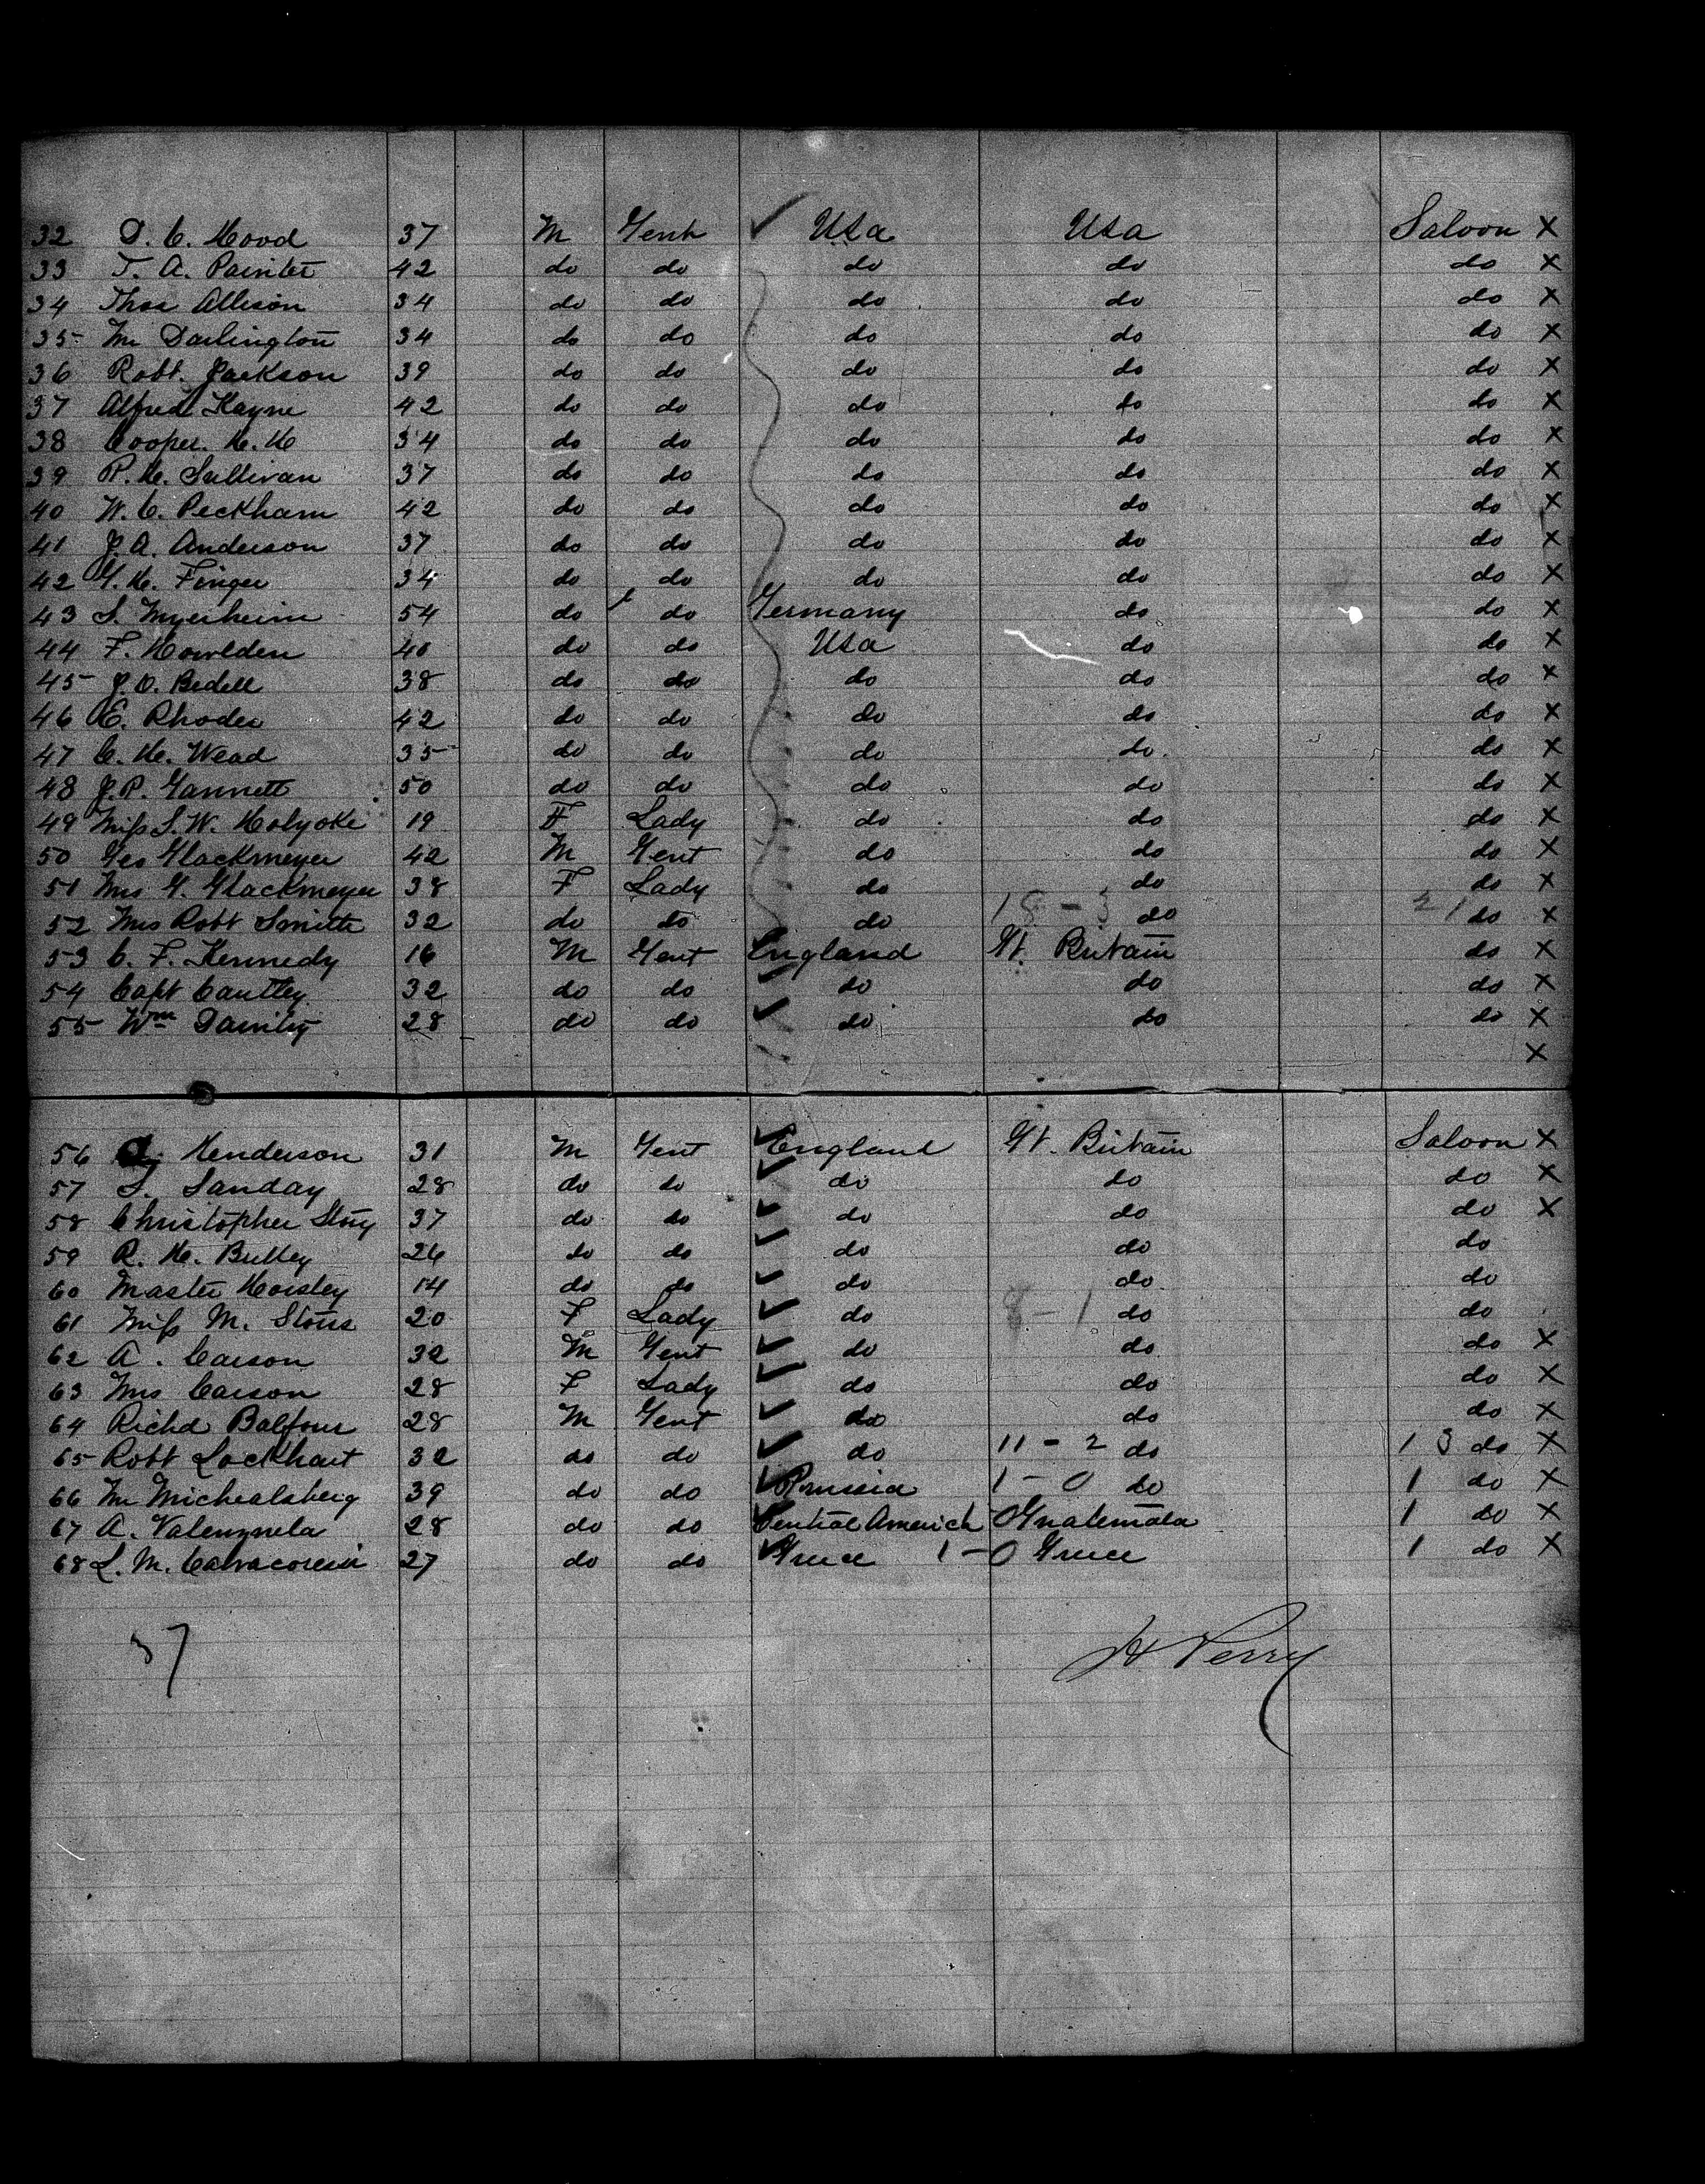 32 D. C. Hood 37 M Gent Usa Usa Saloon X
33 T. A. Painter 42 do do do do do X
34 Thos Allison 34 do do do do do X
35 Mr Darlington 34 do do do do do X
36 Robt. Jackson 39 do do do do do X
37 Alfred Kayne 42 do do do do do X
38 Cooper. H. H 34 do do do do do X
39 P. H. Sullivan 37 do do do do do X
40 W. C. Peckham 42 do do do do do X
41 J. A. Anderson 37 do do do do do X
42 G. H. Finger 34 do do do do do X
43 S. Myerheim 54 do do Germany do do X
44 F. Howlden 40 do do Usa do do X
45 J. O. Bedell 38 do do do do do X
46 E. Rhodes 42 do do do do do X
47 C. H. Wead 35 do do do do do X
48 J. P. Gannett 50 do do do do do X
49 Miss S. W. Holyoke 19 F Lady do do do X
50 Geo Glackmeyer 42 M Gent do do do X
51 Mrs G. Glackmeyer 38 F Lady do do do X
52 Mrs Robt Smith 32 do do do 18 - 3 do 21 do X
53 C. F. Kennedy 16 M Gent England Gt. Britain do X
54 Capt Cautley 32 do do do do do X
55 Wm 28 do do do do do X
X
56 Henderson 31 M Gent England Gt. Britain Saloon X
57 S. Sanday 28 do do do do do X
58 Christopher 37 do do do do do X
59 R. H. Bulley 26 do do do do do
60 Master Horsley 14 do do do do do
61 Miss M. 20 F Lady do 8 - 1 do do
62 A. Carson 32 M Gent do do do X
63 Mrs Carson 28 F Lady do do do X
64 Richd Balfour 28 M Gent do do do X
65 Robt Lockhart 32 do do do 11 - 2 do 13 do X
66 Mr Michealsberg 39 do do 1 - 0 do 1 do X
67 A. Valenzuela 28 do do Central America Guatemala 1 do X
68 L. M. 27 do do Greece 1 - 0 Greece 1 do X
37
H Perry